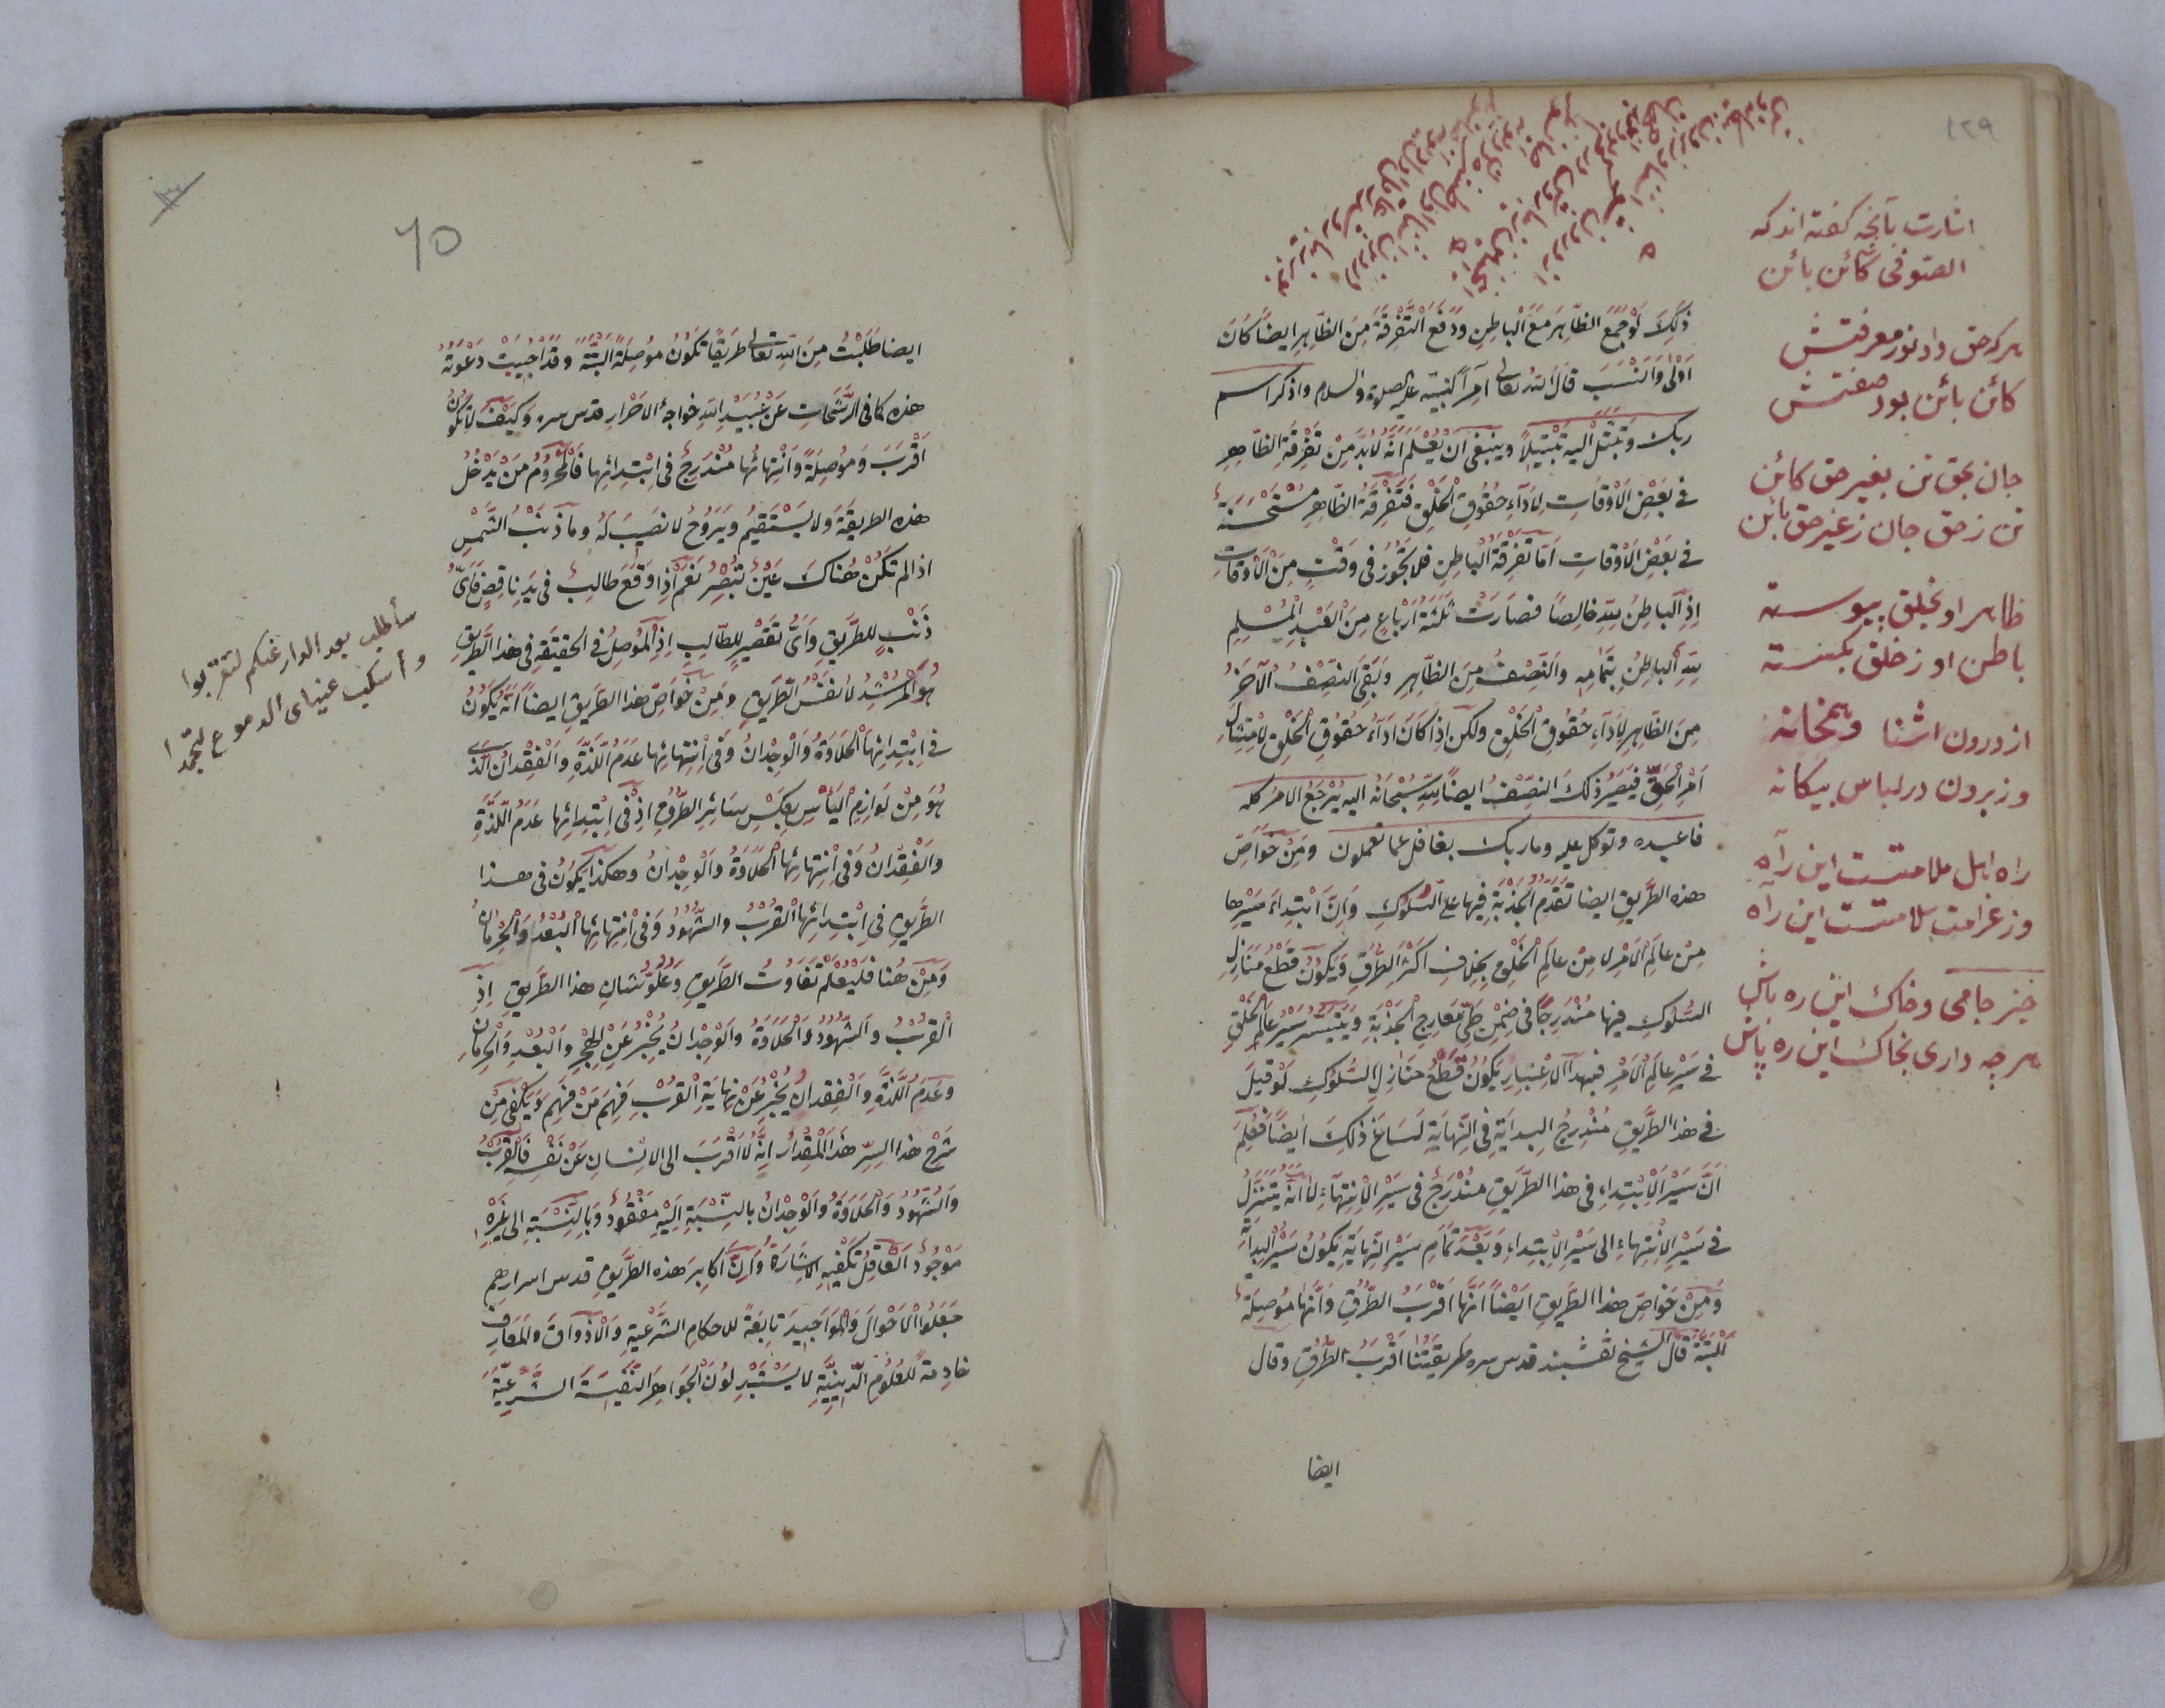 ١٢٩
اشارت بآنچه گفته اند که
الصوفی کائن بائن
هرکه حق داد نور معرفتش
کائن بائن بود صفتش
جان بحق تن بغیر حق کائن
تن ز حق جان ز غیر حق بائن
ظاهر او بخلق پیوسته
باطن او ز خلق بگسسته
از درون اشنا وهمخانه
وز برون در لباس بیکانه
راه اهل ملامتست این راه
وز غرامت سلامتست این راه
خیز جامی وخاک این ره باش
هرچه داری بخاک این ره پاش
ذلك لو جمع الظاهر مع الباطن ودفع التفرقة من الظاهر ايضا كان
اولى وانسب قال الله تعالى آمرا لنبيه عليه الصلوة والسلام واذكر اسم
ربك وتبتل اليه تبتيلا وينبغى ان يعلم انه لابد من تفرقة الظاهر
فى بعض الاوقات لاداء حقوق الخلق فتفرقة الظاهر مستحسنة
فى بعض الاوقات اما تفرقة الباطن فلا تجوز فى وقت من الاوقات
اذ الباطن لله خالصا فصارت ثلثة ارباع من العبد المسلم
لله الباطن بتمامه والنصف من الظاهر وبقى النصف الآخر
من الظاهر لاداء حقوق الخلق ولكن اذا كان اداء حقوق الخلق لامتثال
امر الحق فيصير ذلك النصف ايضا لله سبحانه اليه يرجع الامر كله
فاعبده وتوكل عليه وما ربك بغافل عما تعملون ومن خواص
هذه الطريق ايضا تقدم الجذبة فيها على السلوك وان ابتداء سيرها
من عالم الامر لا من عالم الخلق بخلاف اكثر الطرق ويكون قطع منازل
السلوك فيها مندرجا فى ضمن طى معارج الجذبة ويتيسر سير عالم الخلق
فى سير عالم الامر فبهذا الاعتبار يكون قطع منازل السلوك لو قيل
فى هذا الطريق مندرج البداية فى النهاية لساغ ذلك ايضا فعلم
ان سير الابتداء فى هذا الطريق مندرج فى سير الانتهاء لا انه يتنزل
فى سير الانتهاء الى سير الابتداء وبعد تمام سير النهاية يكون سير البداية
ومن خواص هذا الطريق ايضا انها اقرب الطرق وانها موصلة
للبتة قال الشيخ نقشبند قدس سره طريقتنا اقرب الطرق وقال
ايضا
٦٥
ايضا طلبت من الله تعالى طريقا تكون موصلة البتة وقد اجيبت دعوته
هذه كما فى الرشحات عن عبيد الله خواجه الاحرار قدس سره وكيف لا تكون
اقرب وموصلة وانتهائها مندرج فى ابتدائها فالمحروم من يدخل
هذه الطريقة ولا يستقيم ويروح لا نصيب له وما ذنب الشمس
اذا لم تكن هناك عين تبصر نعم اذا وقع طالب فى يد ناقص فاى
ذنب للطريق واى تقصير للطالب اذ الموصل فى الحقيقة فى هذا الطريق
هو المرشد لا نفس الطريق ومن خواص هذا الطريق ايضا انه يكون
فى ابتدائها الحلاوة والوجدان وفى انتهائها عدم اللذة والفقدان الذى
هو من لوازم اليأس بعكس سائر الطرق اذ فى ابتدائها عدم اللذة
والفقدان وفى انتهائها الحلاوة والوجدان وهكذا يكون فى هذا
الطريق فى ابتدائها القرب والشهود وفى انتهائها البعد والحرمان
ومن هنا فليعلم تفاوت الطريق وعلو شان هذا الطريق اذ
القرب والشهود والحلاوة والوجدان يخبر عن الهجر والبعد والحرمان
وعدم اللذة والفقدان يخبر عن نهاية القرب فهم من فهم ويكفى من
شرح هذا السر هذا المقدار انه لا اقرب الى الانسان عن نفسه فالقرب
والشهود والحلاوة والوجدان بالنسبة اليه مفقود وبالنسبة الى غيره
موجود العاقل تكفيه الاشارة وان اكابر هذه الطريق قدس اسرارهم
جعلوا الاحوال والمواجيد تابعة للاحكام الشرعية والاذواق والمعارف
خادمة للعلوم الدينية لا يستبدلون الجواهر النفيسة الشرعية
سأطلب بعد الدار عنكم لتقربوا
وأسكب عيناى الدموع لتجمدا